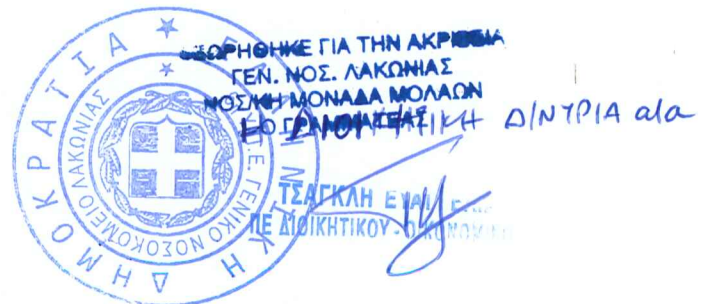 ΘΕΩΡΗΘΗΚΕ ΓΙΑ ΤΗΝ ΑΚΡΙΒΕΙΑ
ΓΕΝ. ΝΟΣ. ΛΑΚΩΝΙΑΣ
ΝΟΣ/ΚΗ ΜΟΝΑΔΑ ΜΟΛΑΩΝ
Ο ΓΡΑΜΜΑΤΕΑΣ
Η ΔΙΟΙΚΗΤΙΚΗ Δ/ΝΤΡΙΑ α/α
ΤΣΑΓΚΛΗ
ΠΕ ΔΙΟΙΚΗΤΙΚΟΥ - ΟΙΚΟΝΟΜΙΚΟΥ
ΕΛΛΗΝΙΚΗ ΔΗΜΟΚΡΑΤΙΑ
ΓΕΝΙΚΟ ΝΟΣΟΚΟΜΕΙΟ ΛΑΚΩΝΙΑΣ